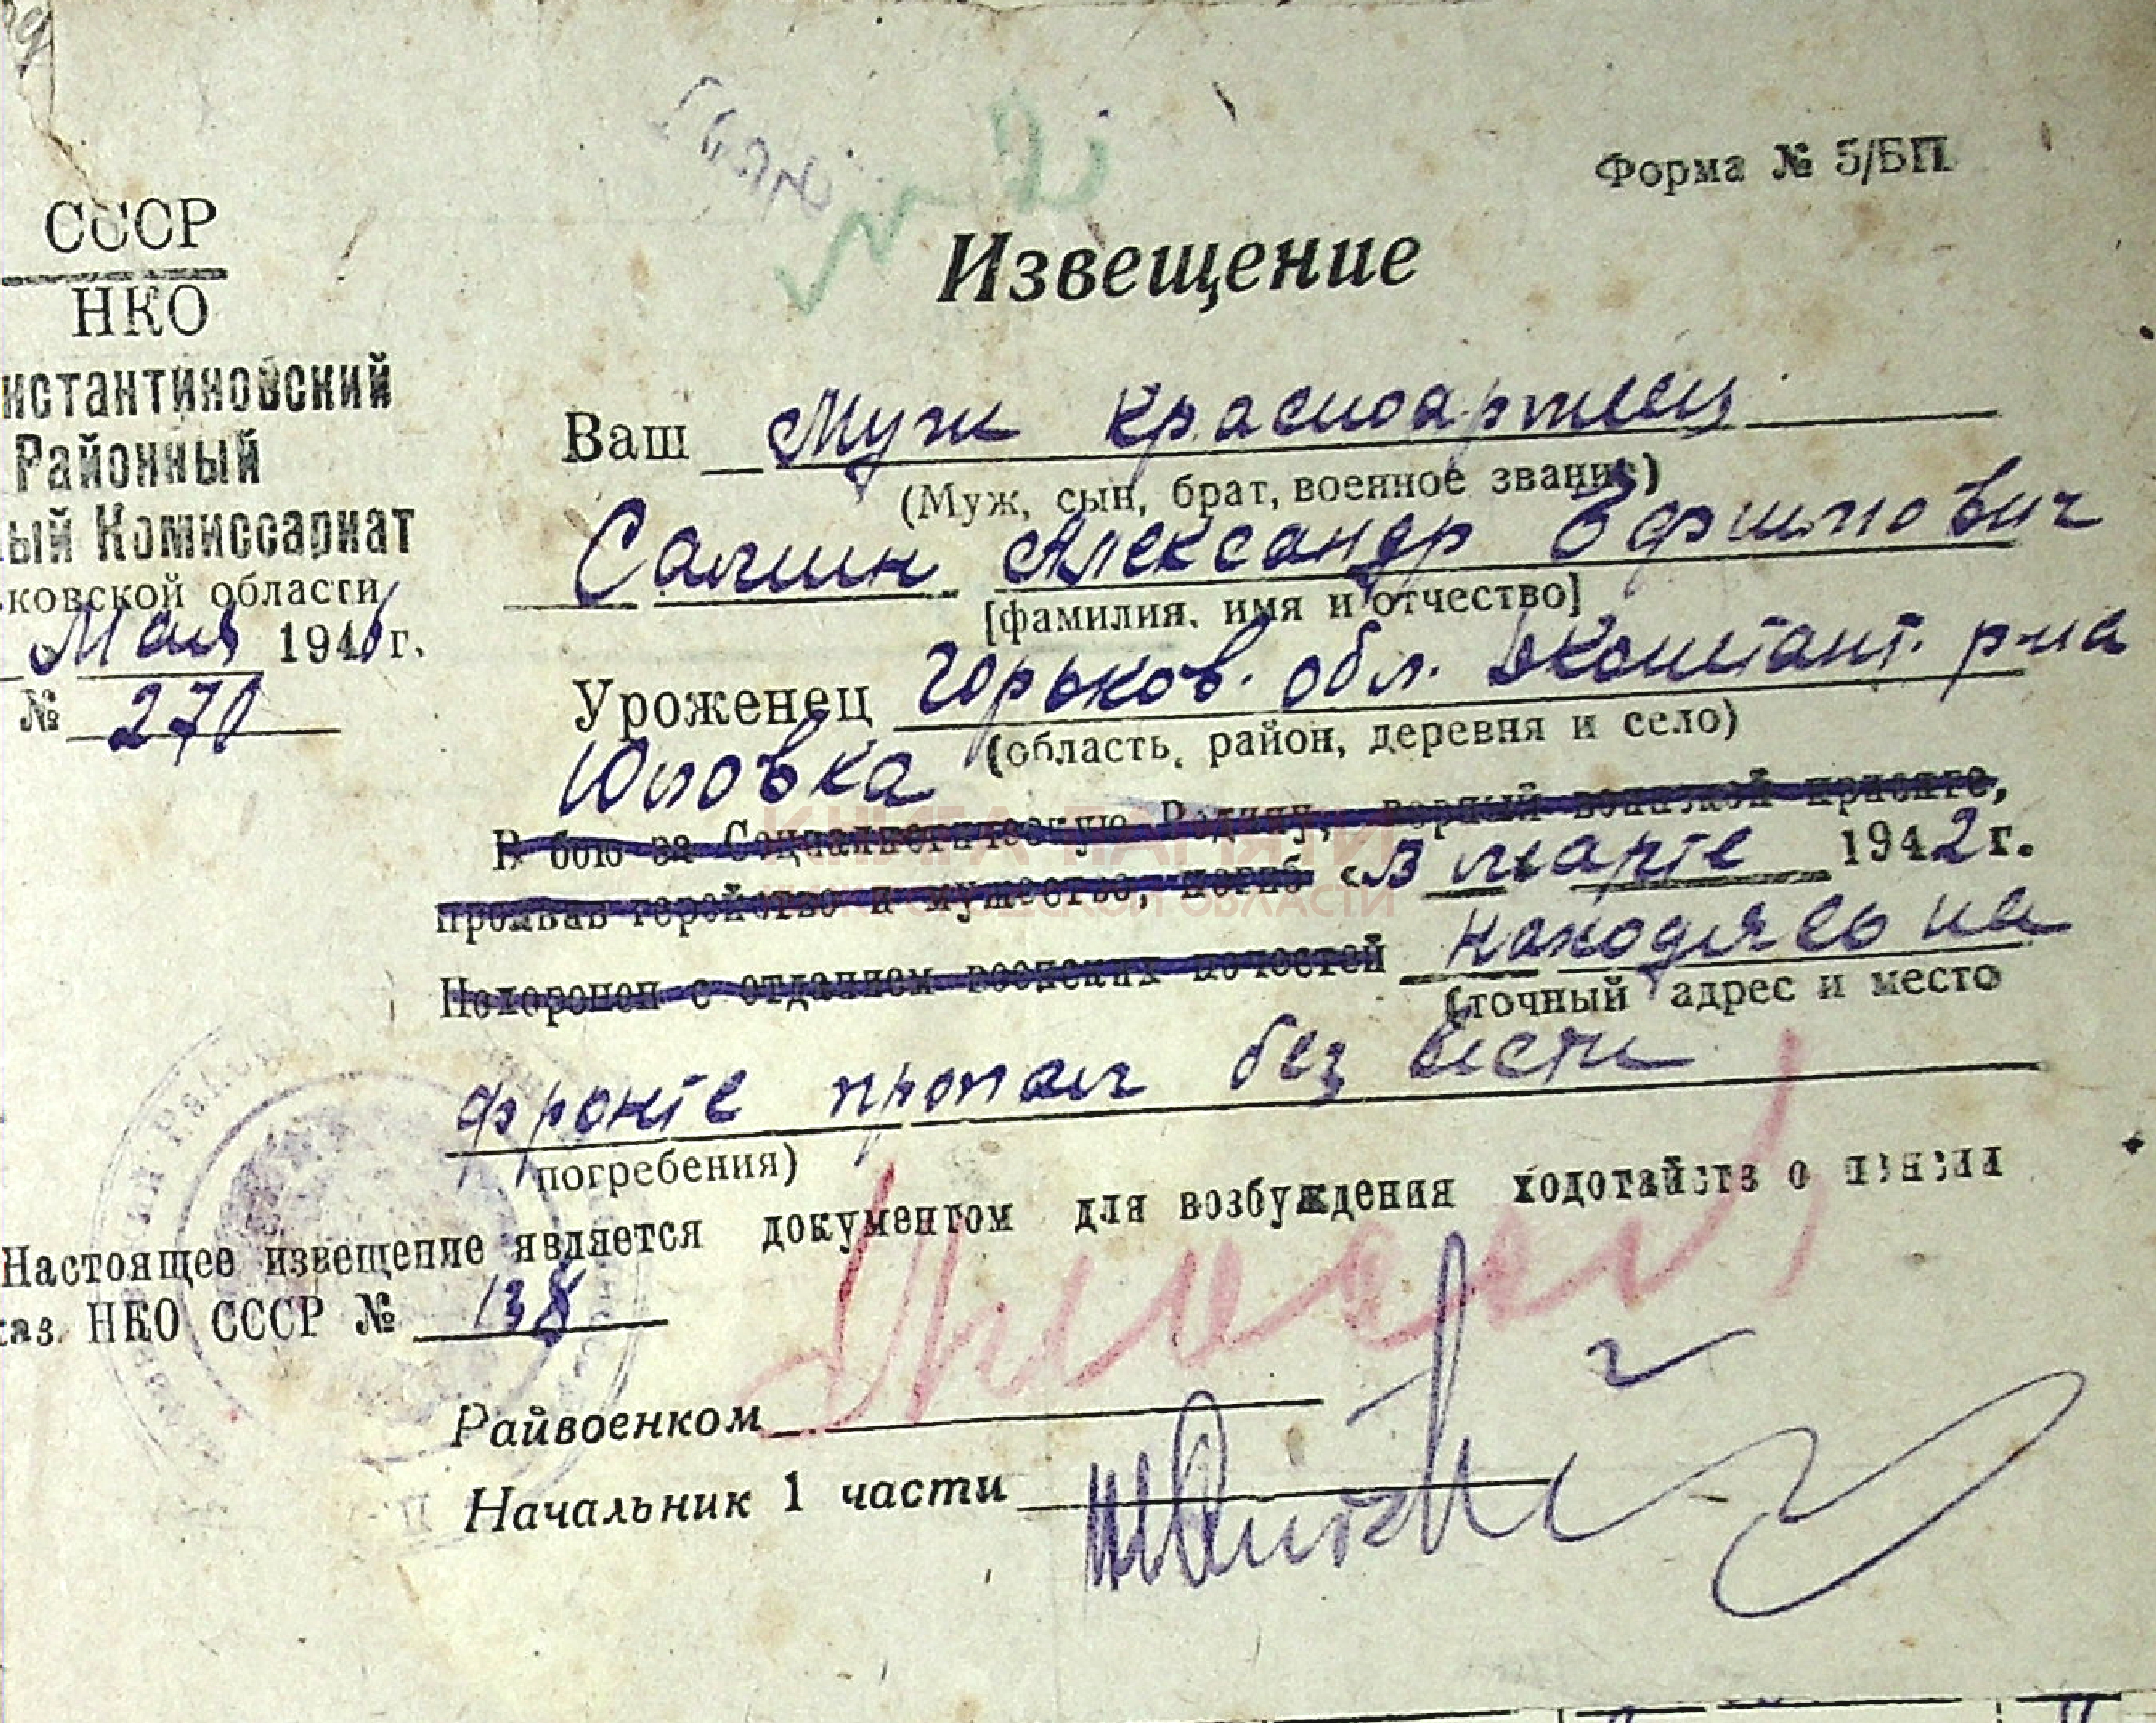 Форма № 5/БП
СССР
НКО
нстантиновский
Районный
ый Комиссариат
ьковской области
Мая 1946 г.
№ 270
Извещение
Ваш Муж красноармеец
(Муж, сын, брат, военное звание)
Салин Александр Ефимович
[фамилия, имя и отчество]
Уроженец Горьков. обл. Д Констант. р-на
(область, район, деревня и село)
Юловка
В бою за Социалистическую Родину, верный воинской присяге,
проявив геройство и мужество, погиб «В марте 1942 г.
Похоронен с отданием воинских почестей находясь на
(точный адрес и место
фронте пропал без вести
погребения)
Настоящее извещение является документом для возбуждения ходотайств о пенсии
каз НКО СССР № 138
Райвоенком
Начальник 1 части
КНИГА ПАМЯТИ
НИЖЕГОРОДСКОЙ ОБЛАСТИ